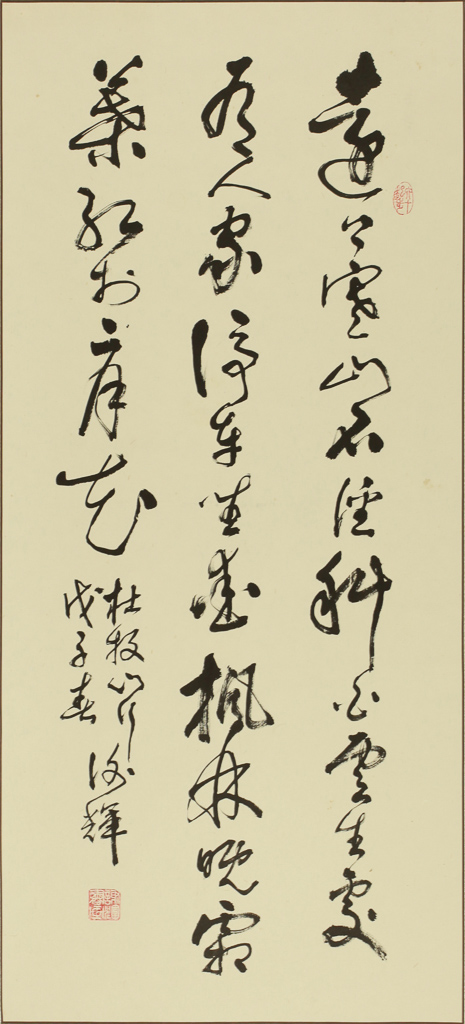 遠上寒山石徑斜白雲生處
有人家停車坐愛楓林晚霜
葉紅於二月花
杜牧山行
戊子春
輝